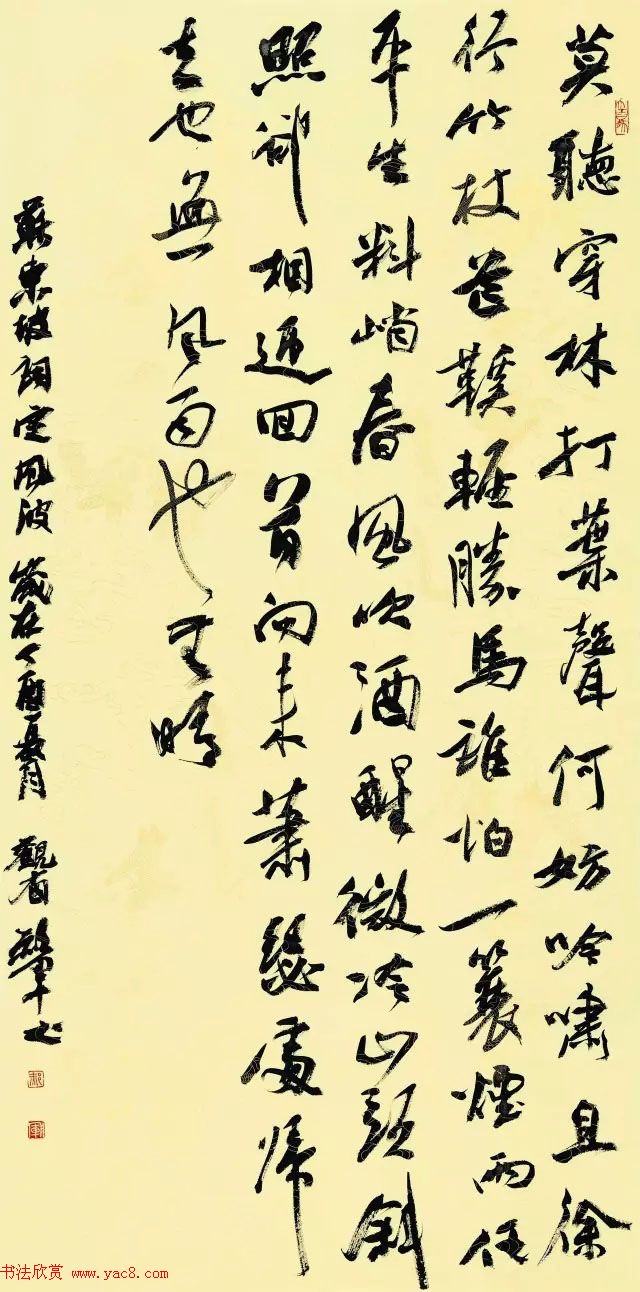 莫聽穿林打葉聲何妨吟嘯且徐
行竹杖芒鞵輕勝馬誰怕一蓑煙雨任
平生料峭春風吹酒醒微冷山頭斜
照卻相迎回首向来蕭瑟處帰
去也無風雨也无晴
蘇東坡詞定風波 歲在丁酉夏月
书法欣赏 www.yac8.com